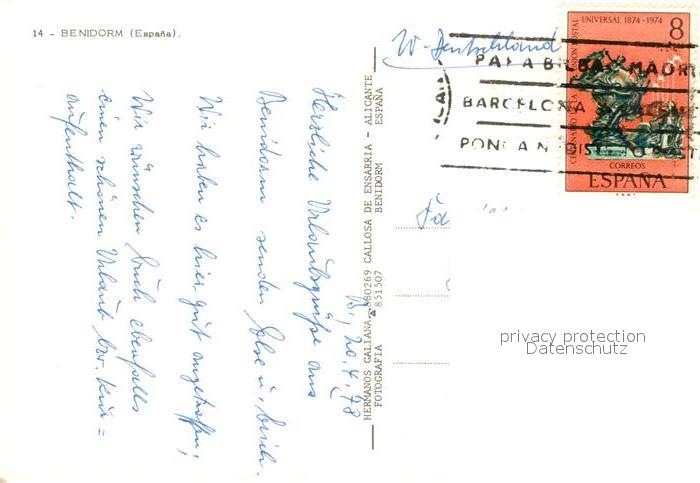 14 - BENIDORM (España).
B., 20.4.78
Herzliche Urlaubsgrüße aus
Benidorm senden Ilse u. Erich.
Wir haben es hier gut angetroffen,
Wir wünschen Euch ebenfalls
einen schönen Urlaub bzw. Kur=
aufenthalt.
HERMANOS GALIANA 880269 CALLOSA DE ENSARRIA - ALICANTE
FOTOGRAFIA 851507 BENIDORM ESPAÑA
W-Deutschland
UNIVERSAL 1874-1974
8
CORREOS
ESPAÑA
PARA BILBAO MADRI
BARCELONA
PONGAN DIST POST
privacy protection
Datenschutz